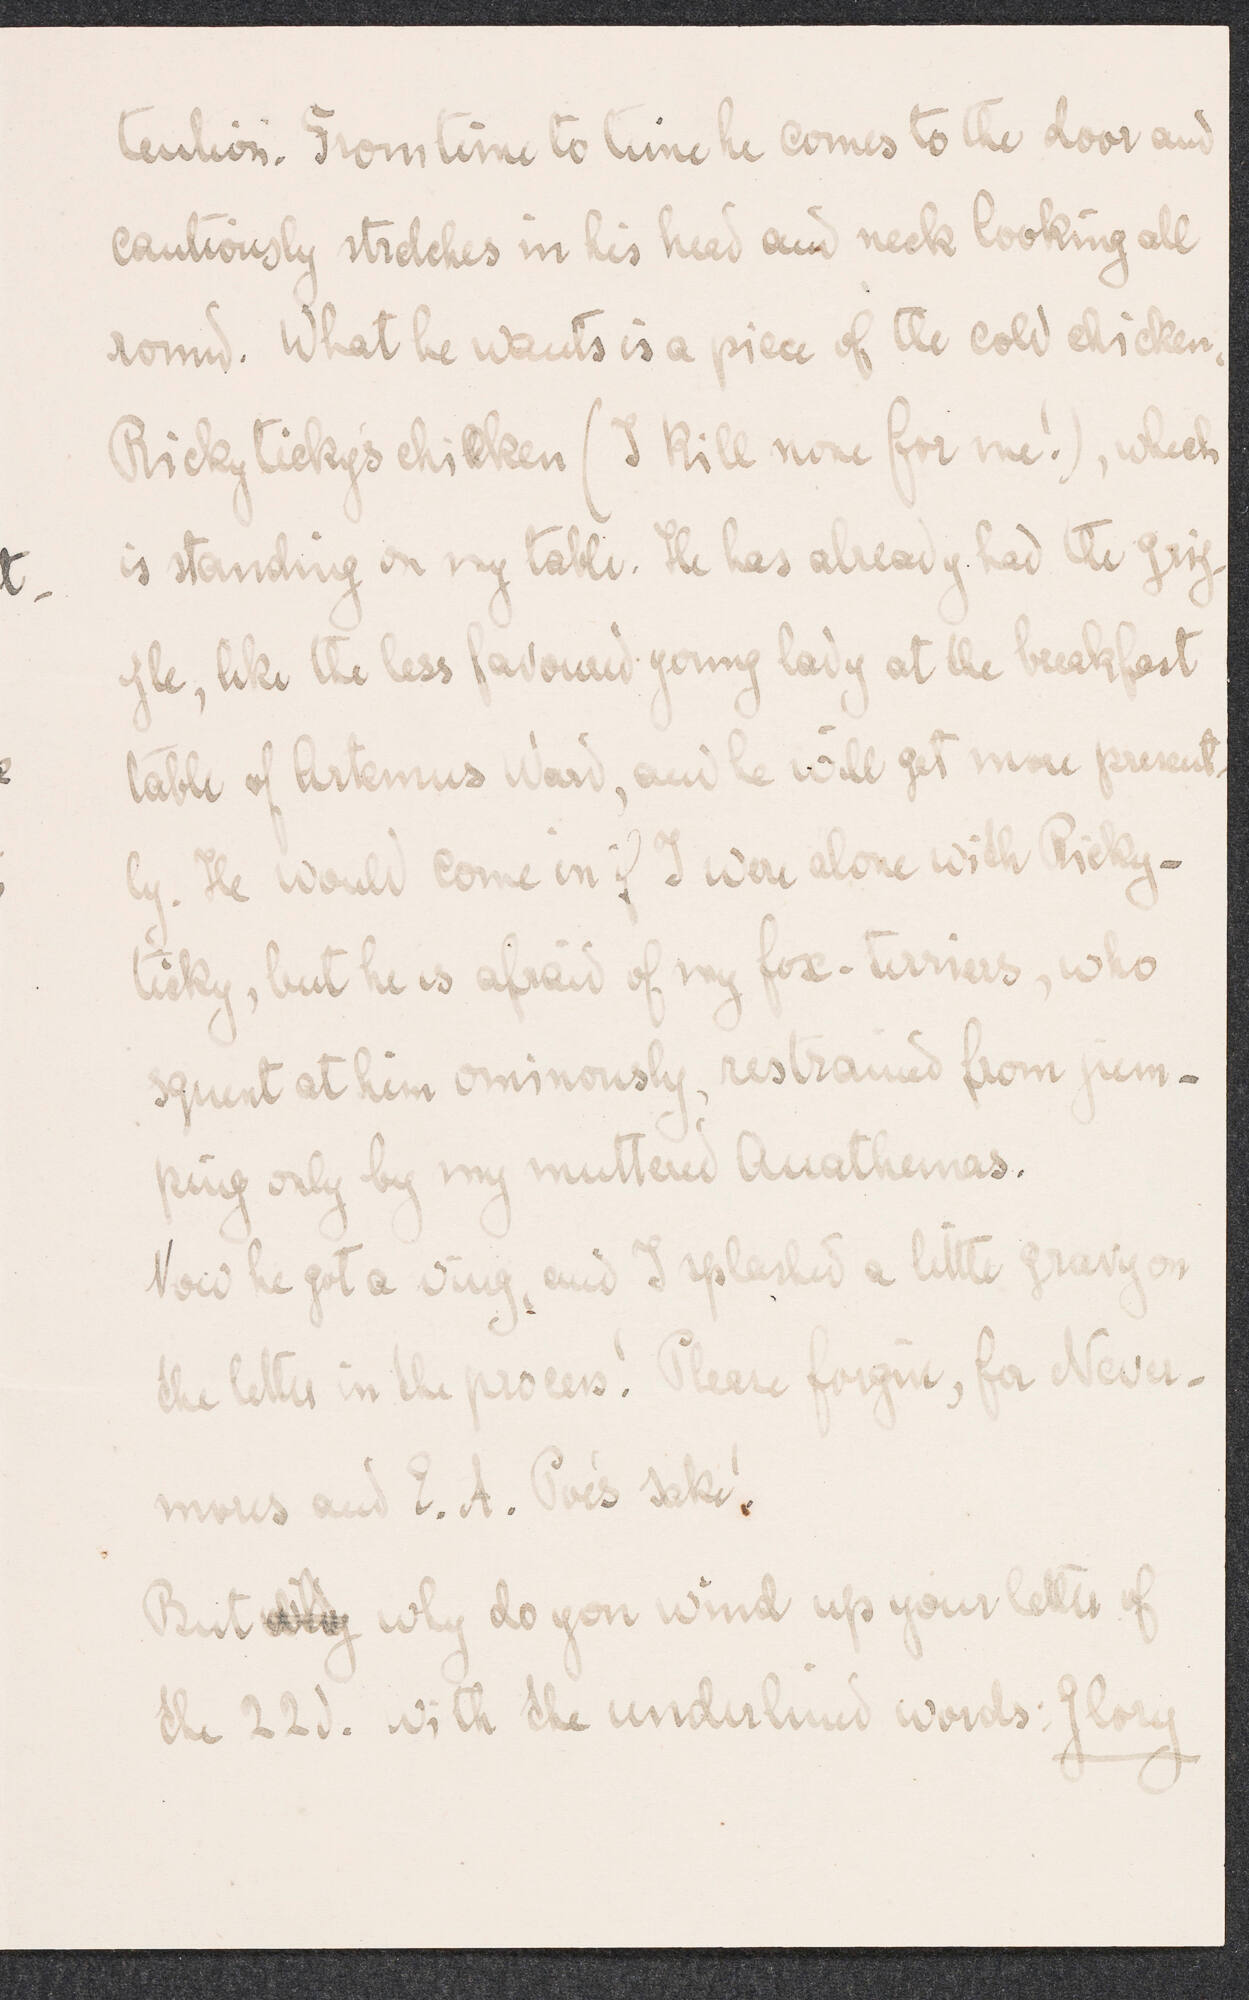 tention. From time to time he comes to the door and
cautiously stretches in his head and neck looking all
round. What he wants is a piece of the cold chicken,
Rickyticky's chicken (I kill none for me!), which
is standing on my table. He has already had the gris-
gle, like the less favoured young lady at the breakfast
table of Artemus Ward, and he will get more present-
ly. He would come in if I were alone with Ricky-
ticky, but he is afraid of my fox-terriers, who
squint at him ominously, restrained from jum-
ping only by my muttered Anathemas.
Now he got a wing, and I splashed a little gravy on
the letter in the process! Please forgive, for Never-
mores and E. A. Poe's sake!
But why do you wind up your letter of
the 22d. with the underlined words: Glory